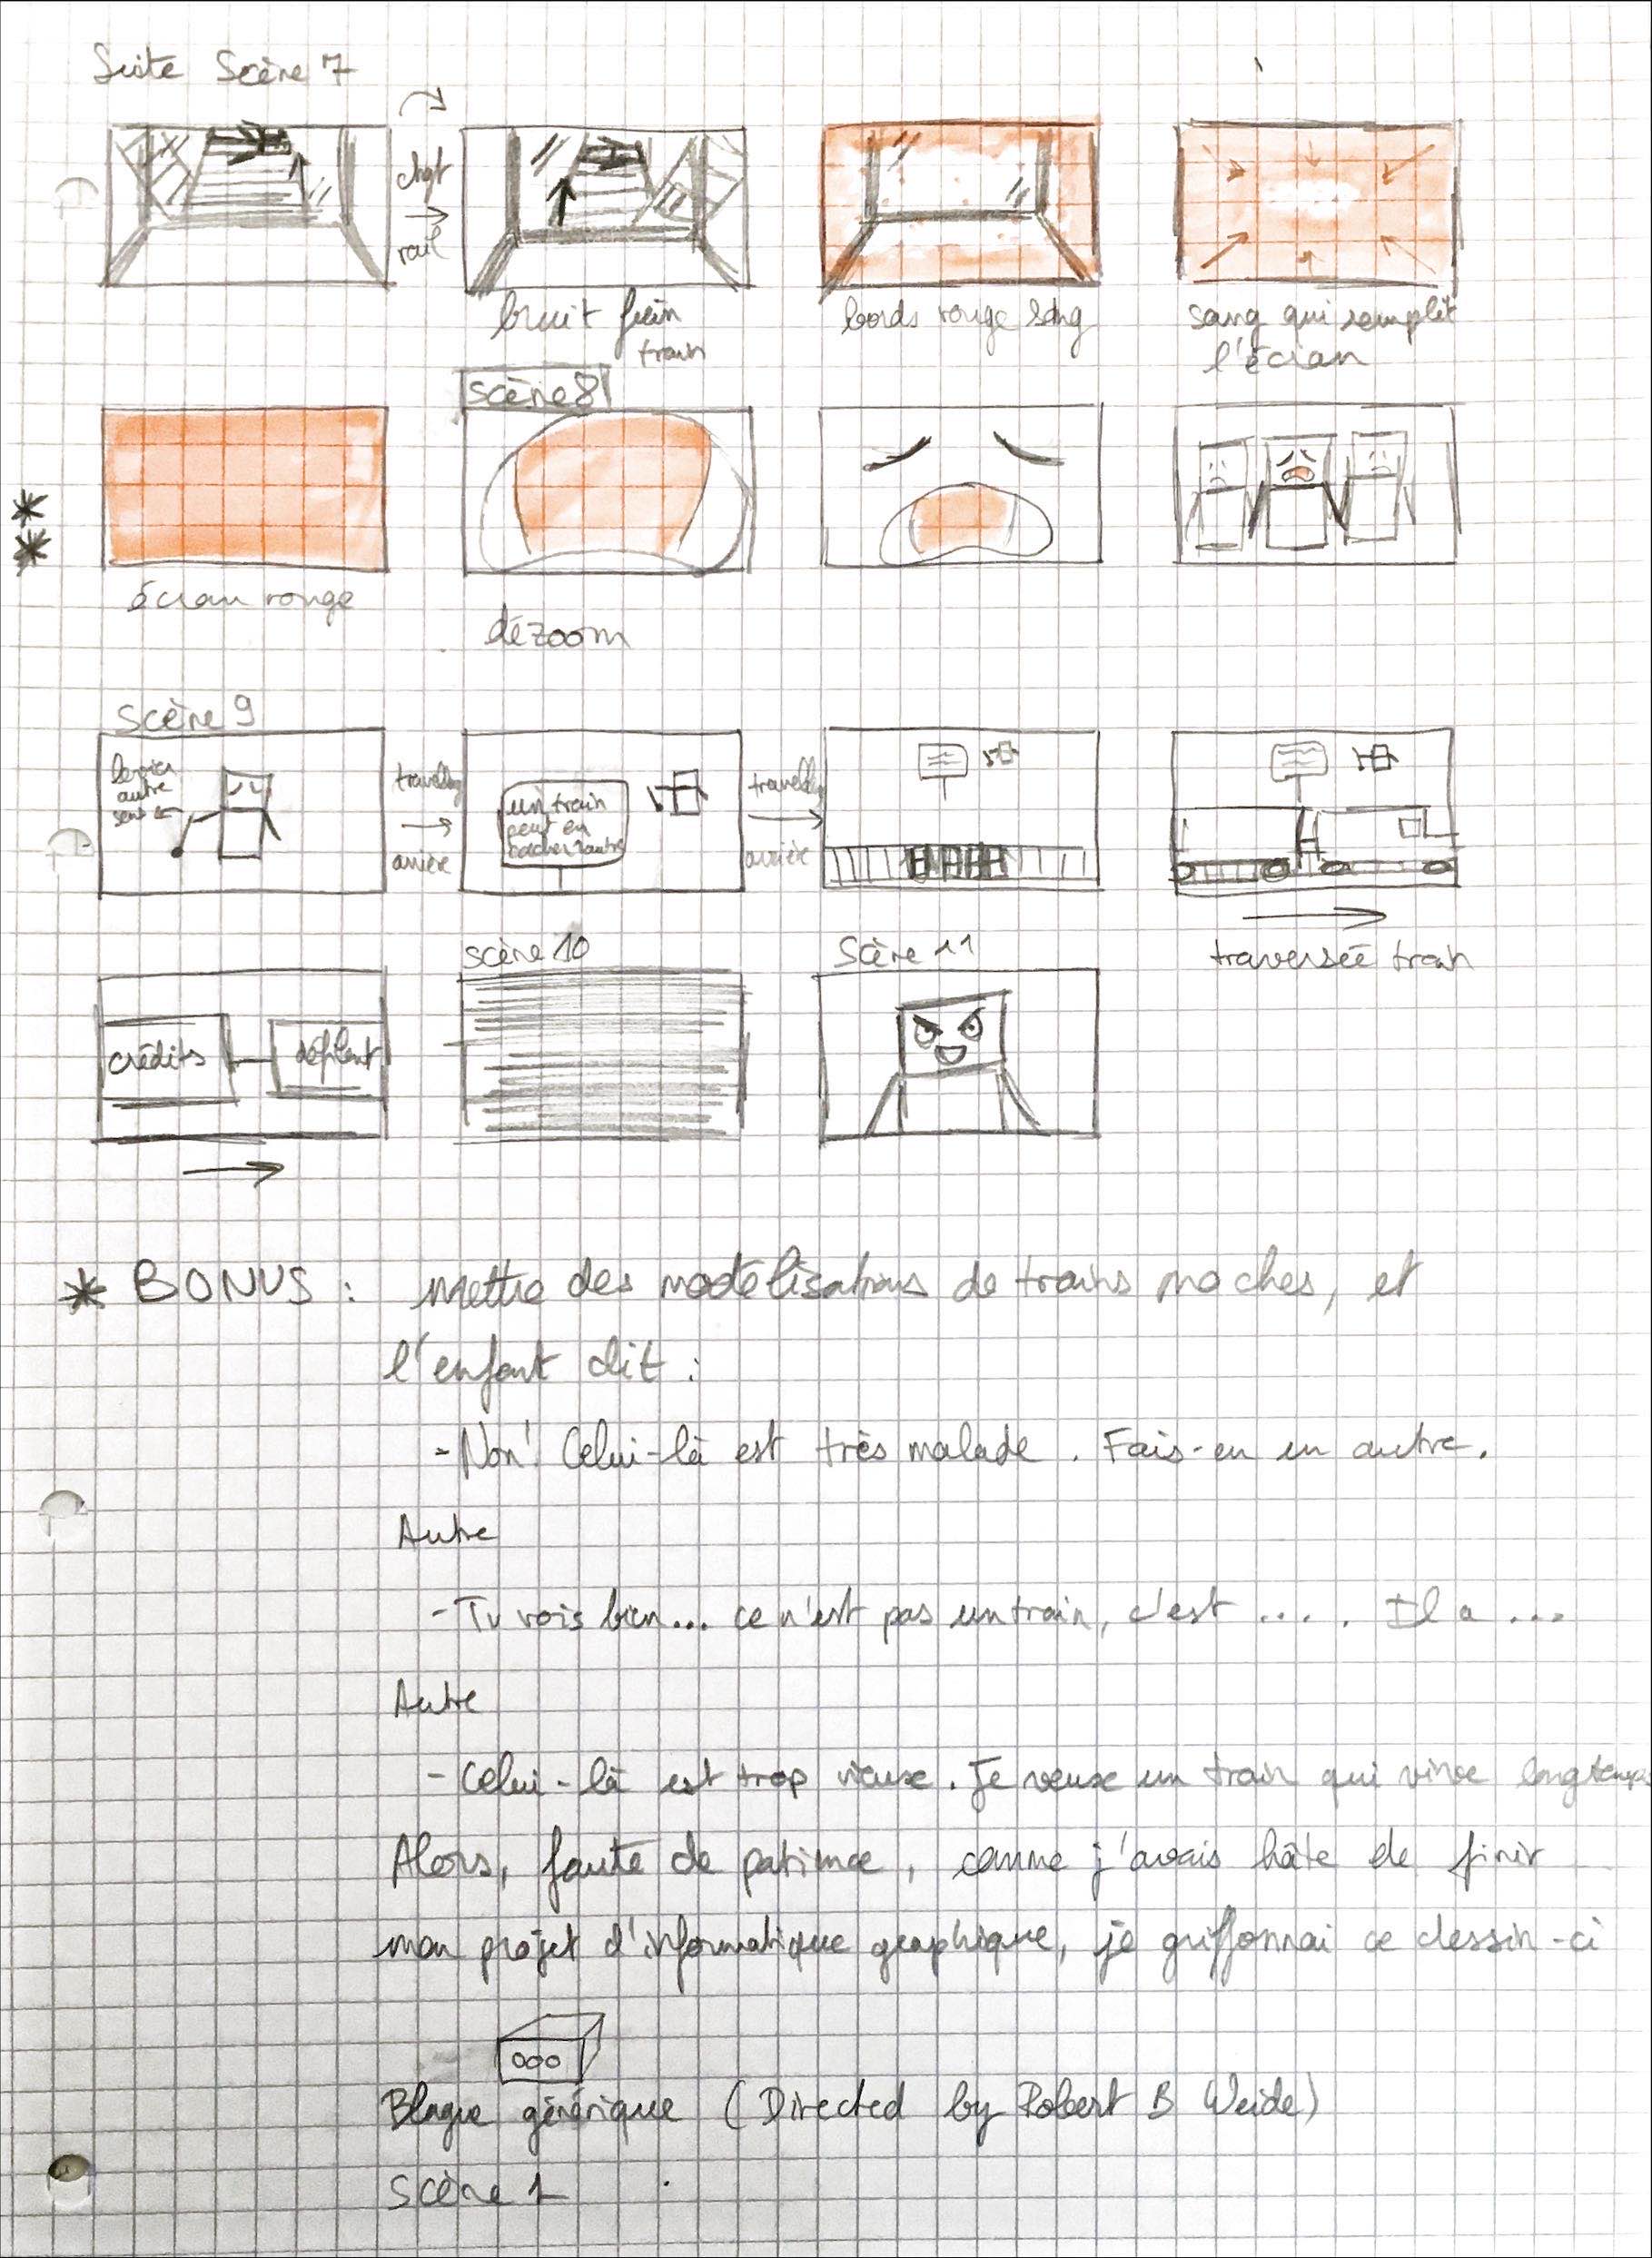 Suite Scène 7
chgt
rail
bruit frein
train
bords rouge sang
sang qui remplit
l'écran
scène 8
écran rouge
dézoom
Scène 9
levier
autre
sens
travelling
arrière
un train
peut en
cacher 1 autre
travelling
arrière
traversée train
crédits
défilent
scène 10
Scène 11
* BONUS : mettre des modélisations de trains moches, et
l'enfant dit :
- Non! Celui-là est très malade. Fais-en un autre.
Autre
- Tu vois bien... ce n'est pas un train, c'est .... Il a ...
Autre
- Celui-là est trop vieux. Je veux un train qui vive longtemps
Alors, faute de patience, comme j'avais hâte de finir
mon projet d'informatique graphique, je griffonnai ce dessin-ci
Blague générique (Directed by Robert B Weide)
Scène 1